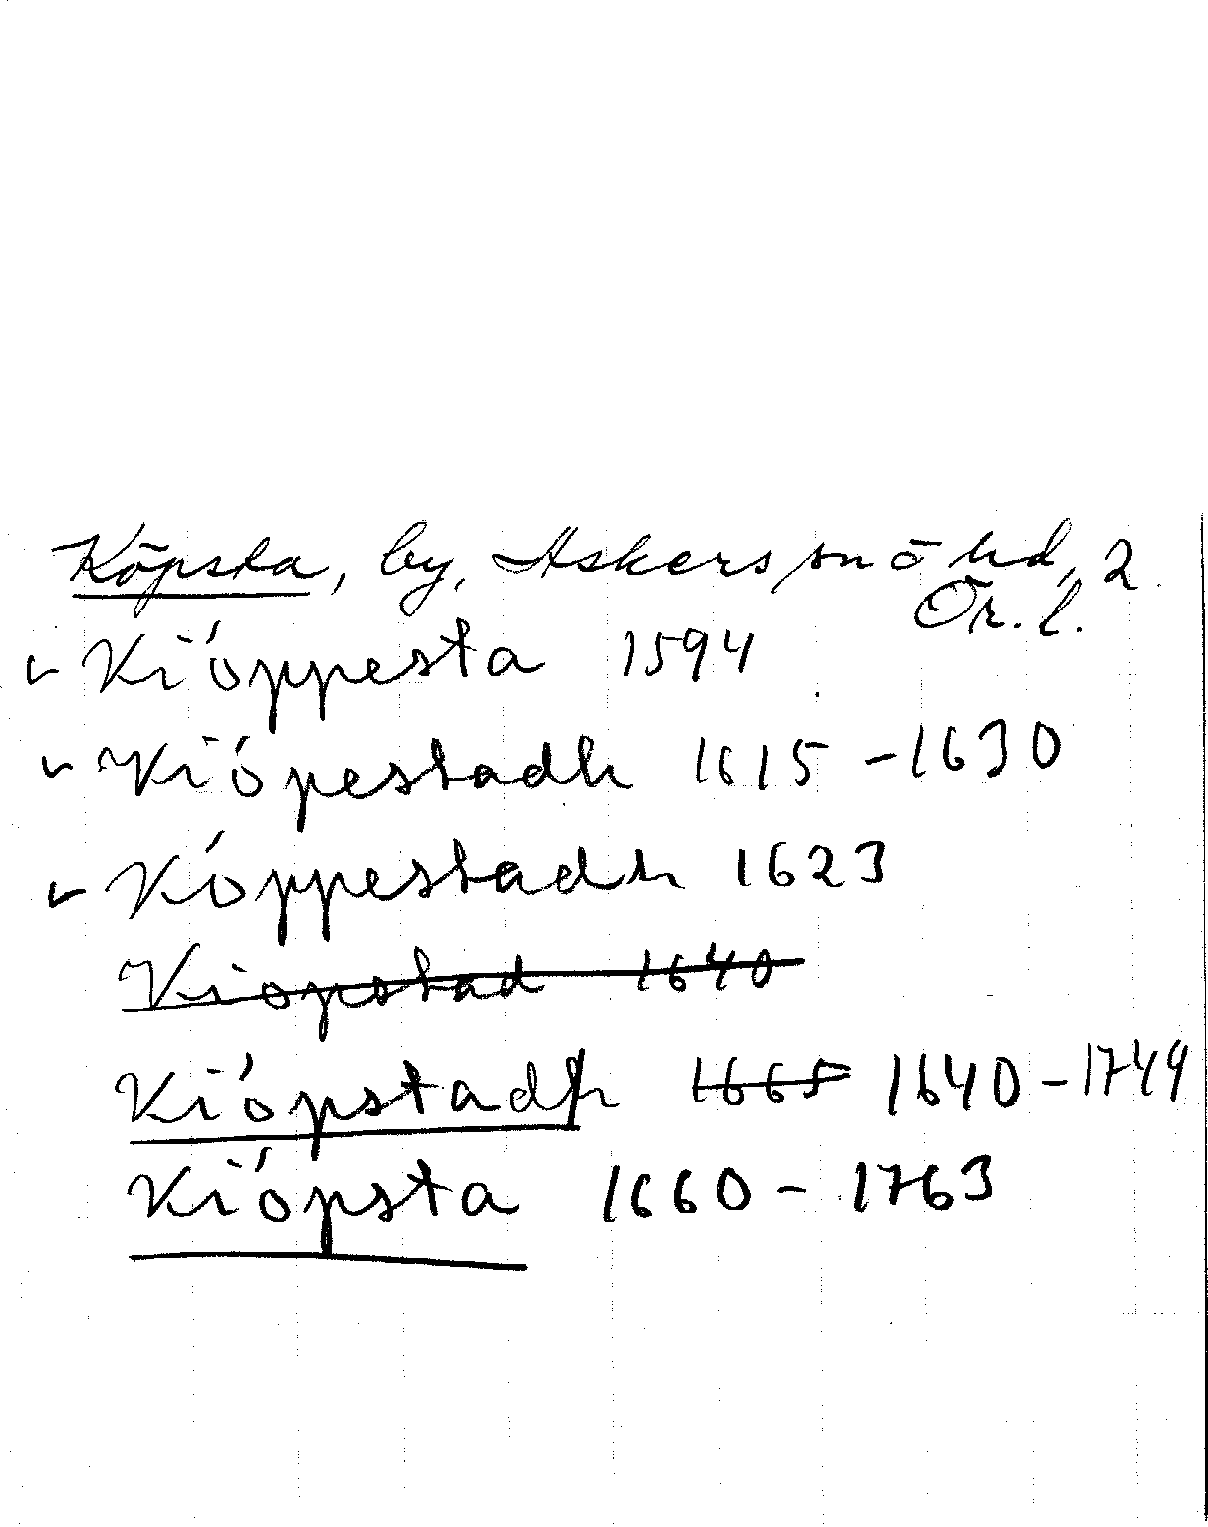 Köpsta, by, Askers sn ö hd, 2
Ör. l.
Kiöppesta 1594
Kiöpestadh 1615 - 1630
Köppestadh 1623
Kiöpstad 1640
Kiöpstadh 1665 1640 - 1749
Kiöpsta 1660 - 1763